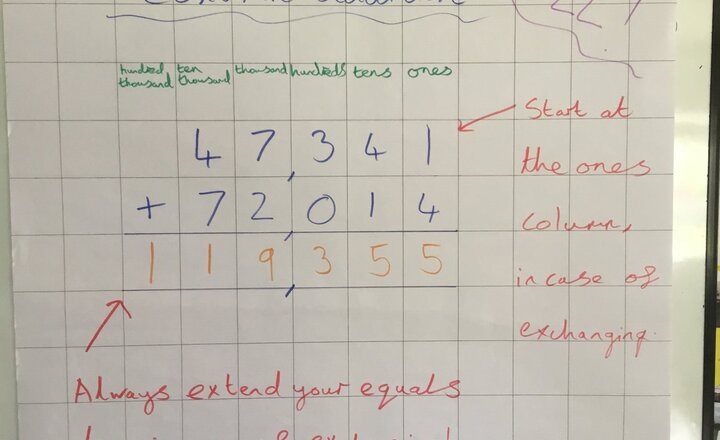 hundred thousand ten thousand thousand hundreds tens ones
4 7, 3 4 1
+ 7 2, 0 1 4
1 1 9, 3 5 5
Start at
the ones
column,
in case of
exchanging.
Always extend your equals